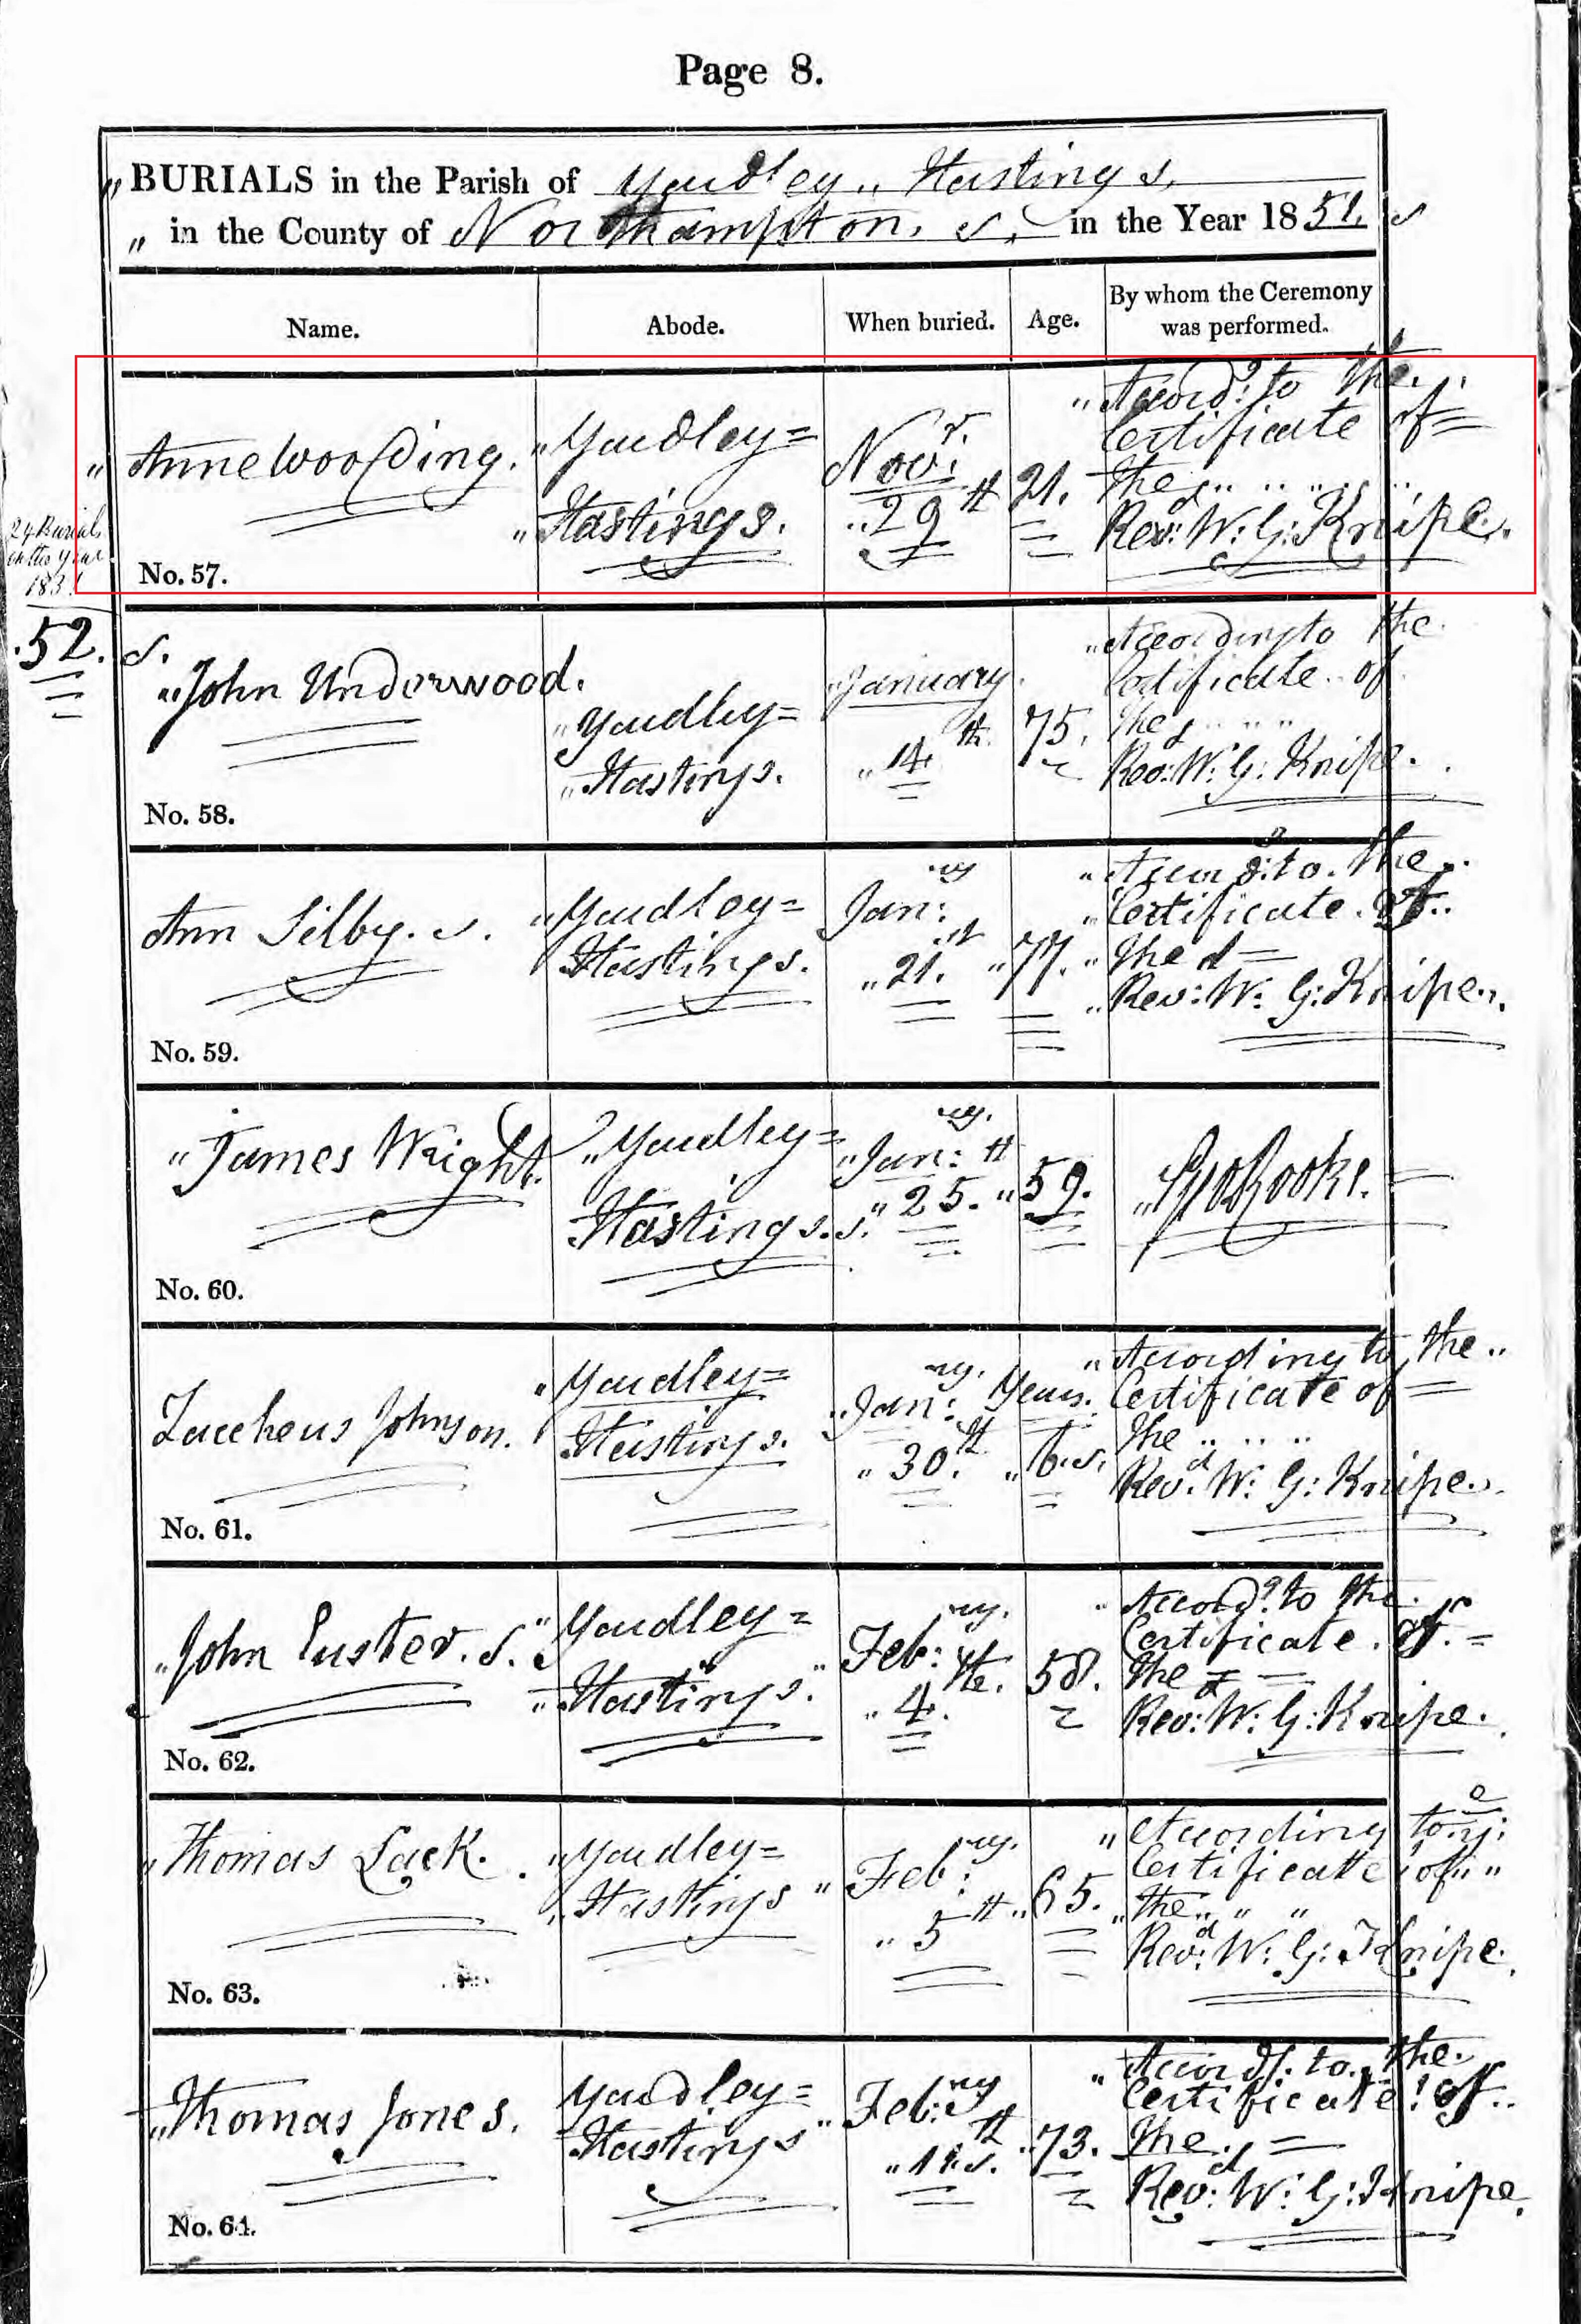 Page 8.
„ BURIALS in the Parish of Yardley „ Hastings.
„ in the County of Northampton. s. in the Year 1851. s
Name. Abode. When buried. Age. By whom the Ceremony was performed.
„ Anne Woolding. „ Yardley= Novr. 21. „ Accordg. to the
„ Hastings. „ 29th Certificate of=
the
Revd: W: G: Knipe.
No. 57.
24 Burials
in the Year
185
52. s. „ John Underwood. „ Yardley= „ January 75. „ According to the
„ Hastings. „ 14th. Certificate of
the
Revd: W: G: Knipe.
No. 58.
Ann Silby. s. „ Yardley= Jan:ry „ 77. „ Accord:g to the
Hastings. „ 21.st „ Certificate of
„ the
„ Revd: W: G: Knipe.
No. 59.
„ James Wright. „ Yardley= „ Jan:ry. „ 59. „ Geo Rooke.
Hastings. s. „ 25.th
No. 60.
Zaccheus Johnson. „ Yardley= „ Jan:ry. Years. „ According to the
Hastings. „ 30.th „ 6. s. Certificate of=
the
Revd. W: G: Knipe.
No. 61.
„ John Luster. s. „ Yardley= Feb:ry. 58. „ Accordg. to the
„ Hastings. „ 4.th. Certificate of=
the
Revd: W: G: Knipe.
No. 62.
„ Thomas Lack. „ Yardley= „ Feb:ry. „ 65. „ According to ye:
„ Hastings „ 5th Certificate of „
„ the „ „ „
Revd: W: G: Knipe.
No. 63.
„ Thomas Jones. Yardley= Feb:ry „ 73. „ Accordg. to the
Hastings „ Certificate of
the
Revd: W: G: Knipe.
No. 64.